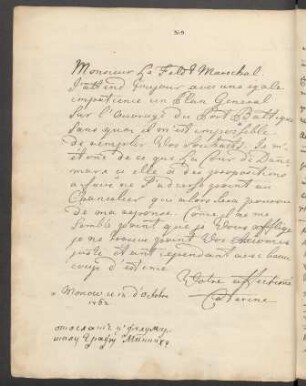 Monsieur Le Feldt Marechal
J'attend toujour avec une egale
impatience un Plan General
Sur l'Ouvrage du Port Baltique
Sans quoi il m'est impossible
de remplir Vos Souhaits. Je m'é
tone de ce que la Cour de Dane
mark si elle a des propositions
a faire ne s'adresse point au
Chancelier qui alors sera
de ma reponse. Come je ne
semble point que je Vous afflige
je ne trouve point Vos
juste etant cependant avec beau
coup d'estime
Votre affectionée
Caterine
a Moscou le d'Octobre
1762
отослано к фелтмар
шалу Графу Миниху